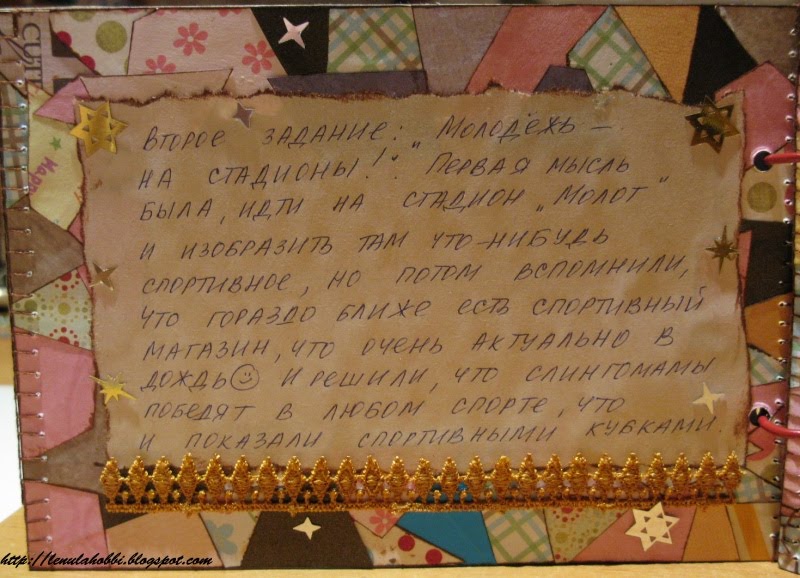 Второе задание: „Молодёжь –
на стадионы!". Первая мысль
была, идти на стадион „Молот"
и изобразить там что-нибудь
спортивное, но потом вспомнили,
что гораздо ближе есть спортивный
магазин, что очень актуально в
дождь☺ И решили, что слингомамы
победят в любом спорте, что
и показали спортивными кубками.
http://lenulahobbi.blogspot.com